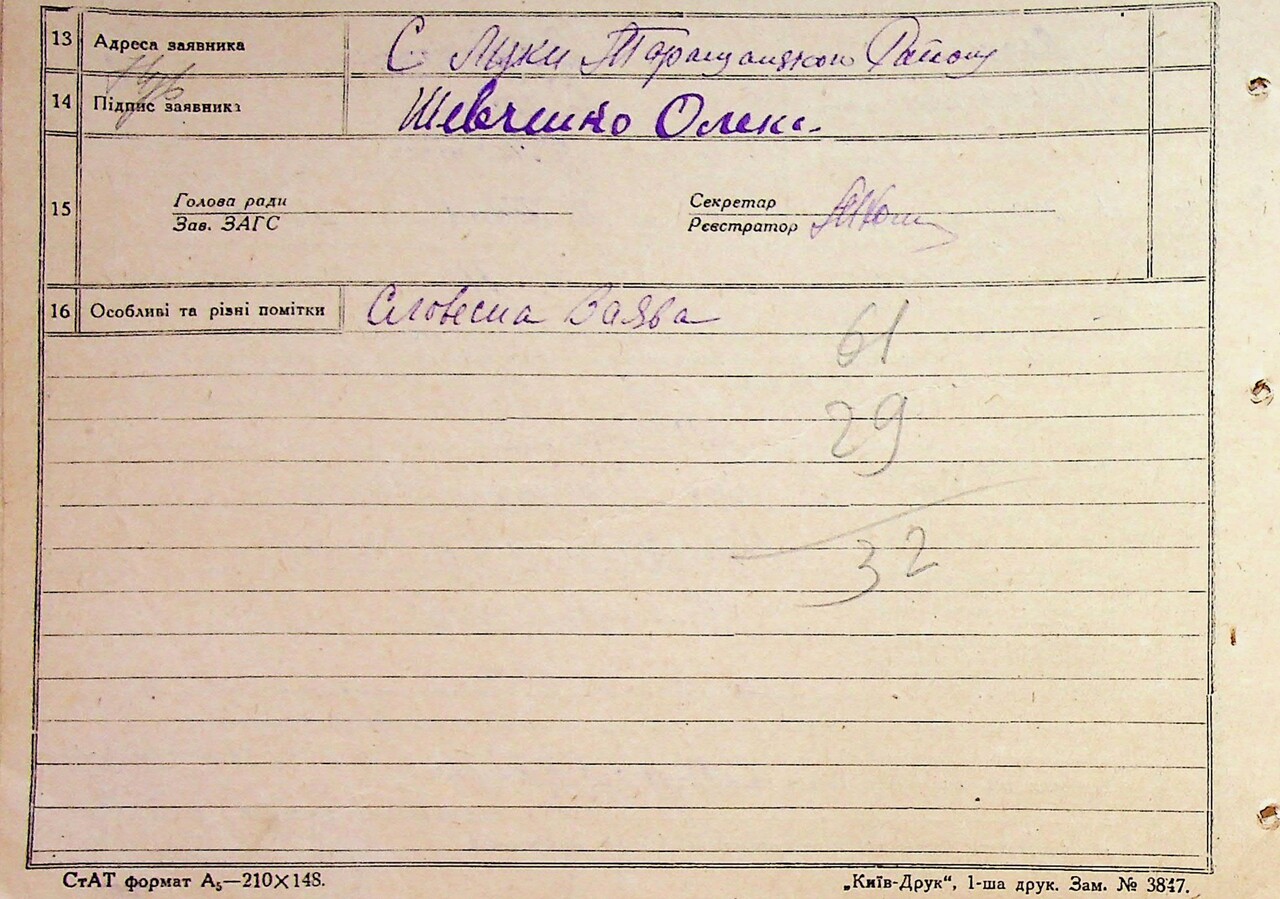 13 Адреса заявника С Луки Таращанського Району
14 Підпис заявника Шевченко Олекс.
15 Голова ради Секретар
Зав. ЗАГС Реєстратор
16 Особливі та різні помітки Словесна Заява
61
29
32
СтАТ формат А₅—210×148. „Київ-Друк“, 1-ша друк. Зам. № 3847.